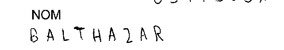 NOM
BALTHAZAR